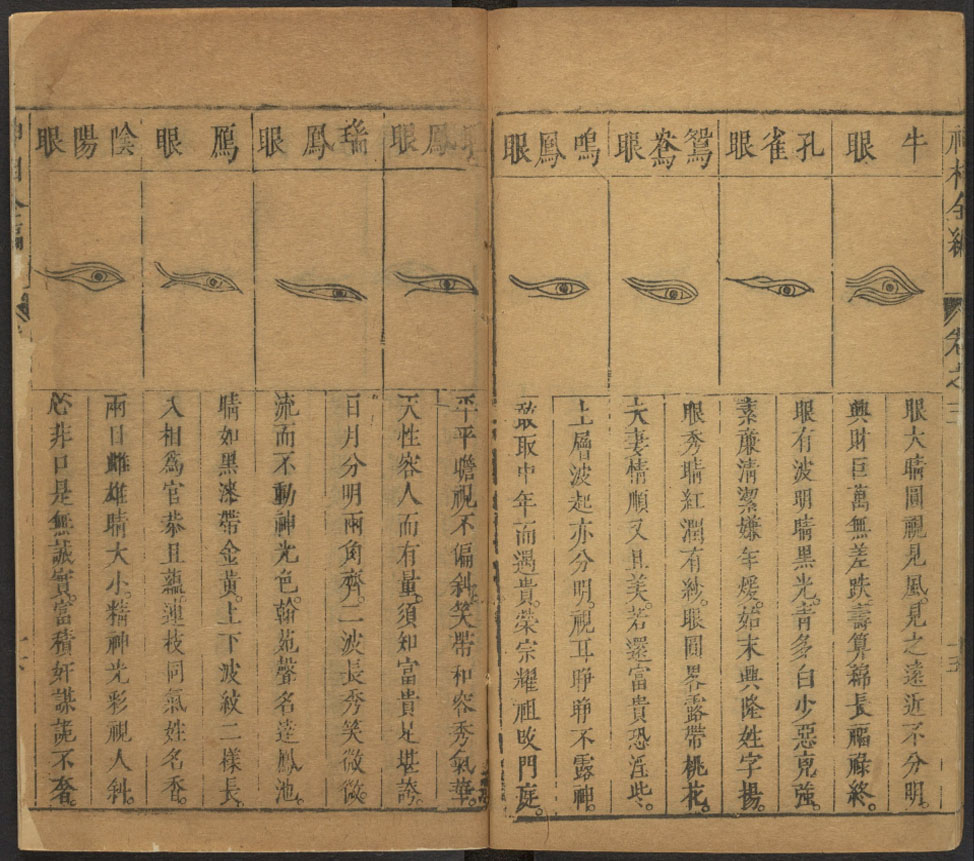 神相全編 卷之三 十五
牛眼
眼大睛圓視見風。見之遠近不分明。
興財巨萬無差跌壽算綿長福祿終。
孔雀眼
眼有波明睛黑光。青多白少惡兇強。
素廉清潔嫌年煖。始末興隆姓字揚。
鴛鴦眼
眼秀睛紅潤有紗。眼圓畧露帶桃花。
夫妻情順又且美若還富貴恐淫些。
鳴鳳眼
上層波起亦分明。視耳睜睜不露神。
敢取中年而遇貴。榮宗耀祖改門庭。
鳳眼
平平瞻視不偏斜。笑帶和容秀氣華。
天性容人而有量。須知富貴足堪誇。
瑞鳳眼
日月分明兩角齊。二波長秀笑微微。
流而不動神光色。翰苑聲名達鳳池。
鴈眼
睛如黑漆帶金黃。上下波紋二樣長。
入相為官恭且蘊連枝同氣姓名香。
陰陽眼
兩目雌雄睛大小。精神光彩視人斜。
心非口是無誠實。富積奸謀詭不奢。